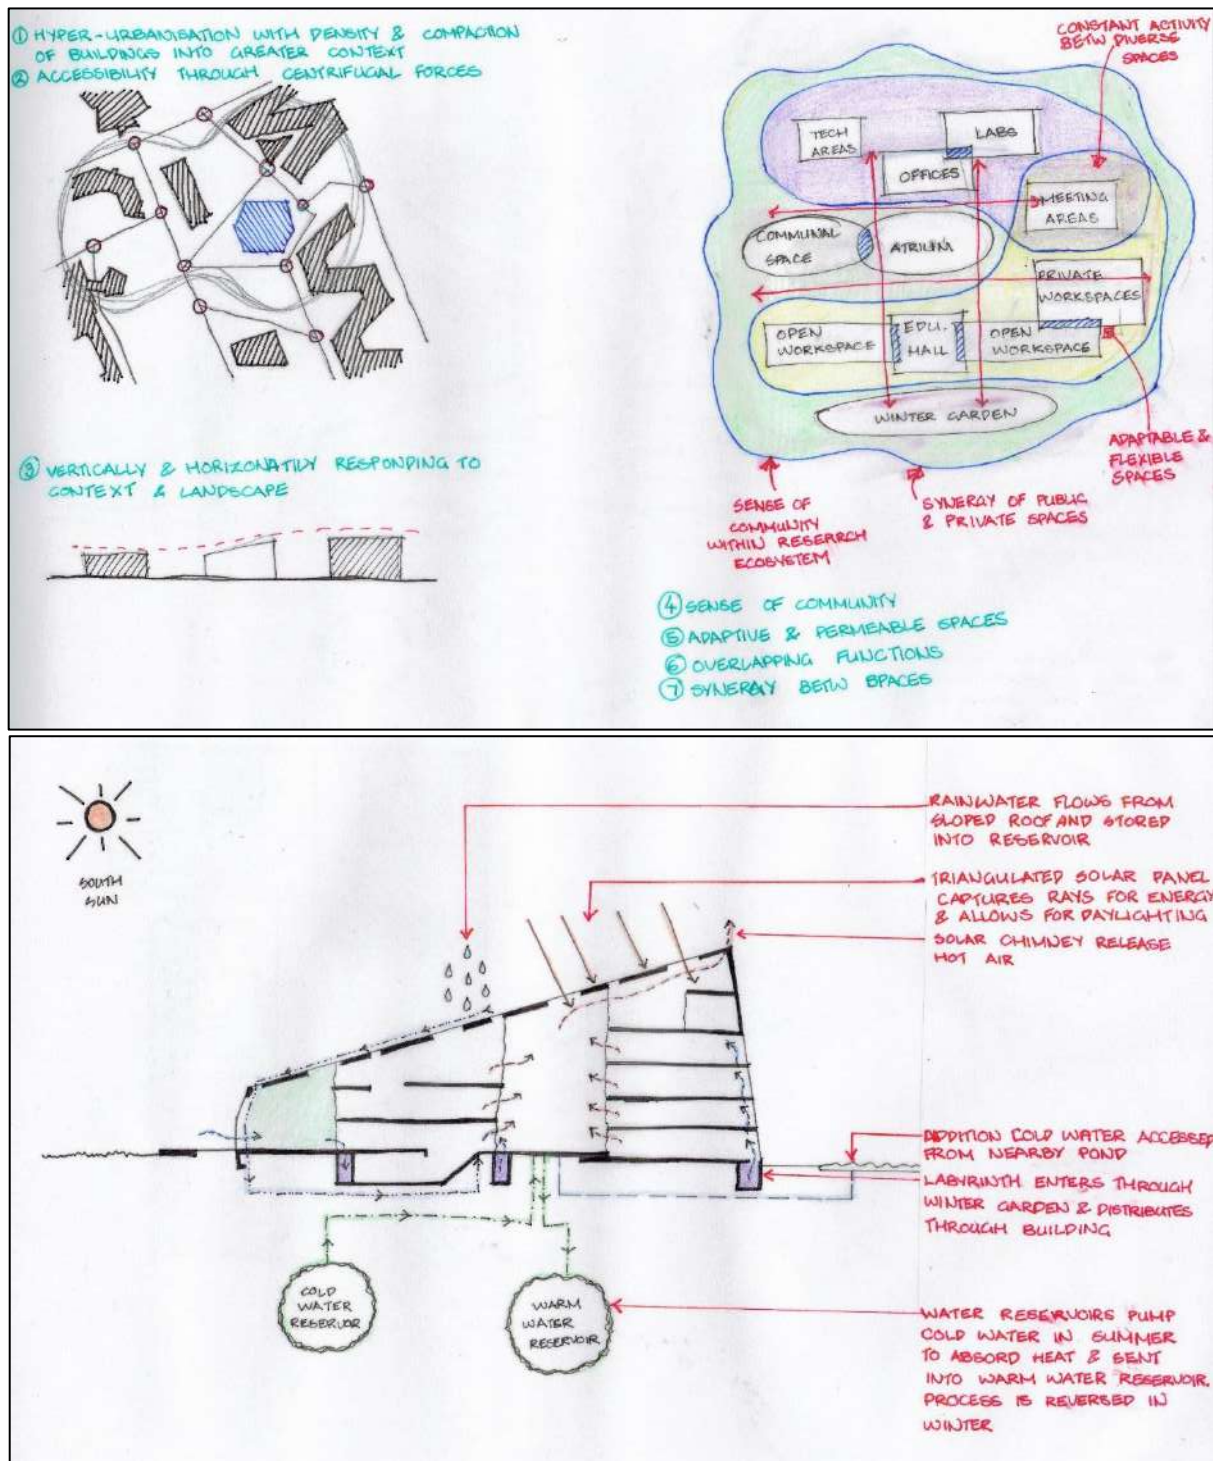 ① HYPER-URBANISATION WITH DENSITY & COMPACTION
OF BUILDINGS INTO GREATER CONTEXT
② ACCESSIBILITY THROUGH CENTRIFUGAL FORCES
③ VERTICALLY & HORIZONATILY RESPONDING TO
CONTEXT & LANDSCAPE
CONSTANT ACTIVITY
BETW DIVERSE
SPACES
TECH
AREAS
LABS
OFFICES
MEETING
AREAS
COMMUNAL
SPACE
ATRIUM
PRIVATE
WORKSPACES
OPEN
WORKSPACE
EDU.
HALL
OPEN
WORKSPACE
WINTER GARDEN
ADAPTABLE &
FLEXIBLE
SPACES
SENSE OF
COMMUNITY
WITHIN RESEARCH
ECOSYSTEM
SYNERGY OF PUBLIC
& PRIVATE SPACES
④ SENSE OF COMMUNITY
⑤ ADAPTIVE & PERMEABLE SPACES
⑥ OVERLAPPING FUNCTIONS
⑦ SYNERGY BETW SPACES
SOUTH
SUN
RAINWATER FLOWS FROM
SLOPED ROOF AND STORED
INTO RESERVOIR
TRIANGULATED SOLAR PANEL
CAPTURES RAYS FOR ENERGY
& ALLOWS FOR DAYLIGHTING
SOLAR CHIMNEY RELEASE
HOT AIR
ADDITION COLD WATER ACCESSED
FROM NEARBY POND
LABYRINTH ENTERS THROUGH
WINTER GARDEN & DISTRIBUTES
THROUGH BUILDING
COLD
WATER
RESERVOR
WARM
WATER
RESERVOIR
WATER RESERVOIRS PUMP
COLD WATER IN SUMMER
TO ABSORD HEAT & SENT
INTO WARM WATER RESERVOIR.
PROCESS IS REVERSED IN
WINTER